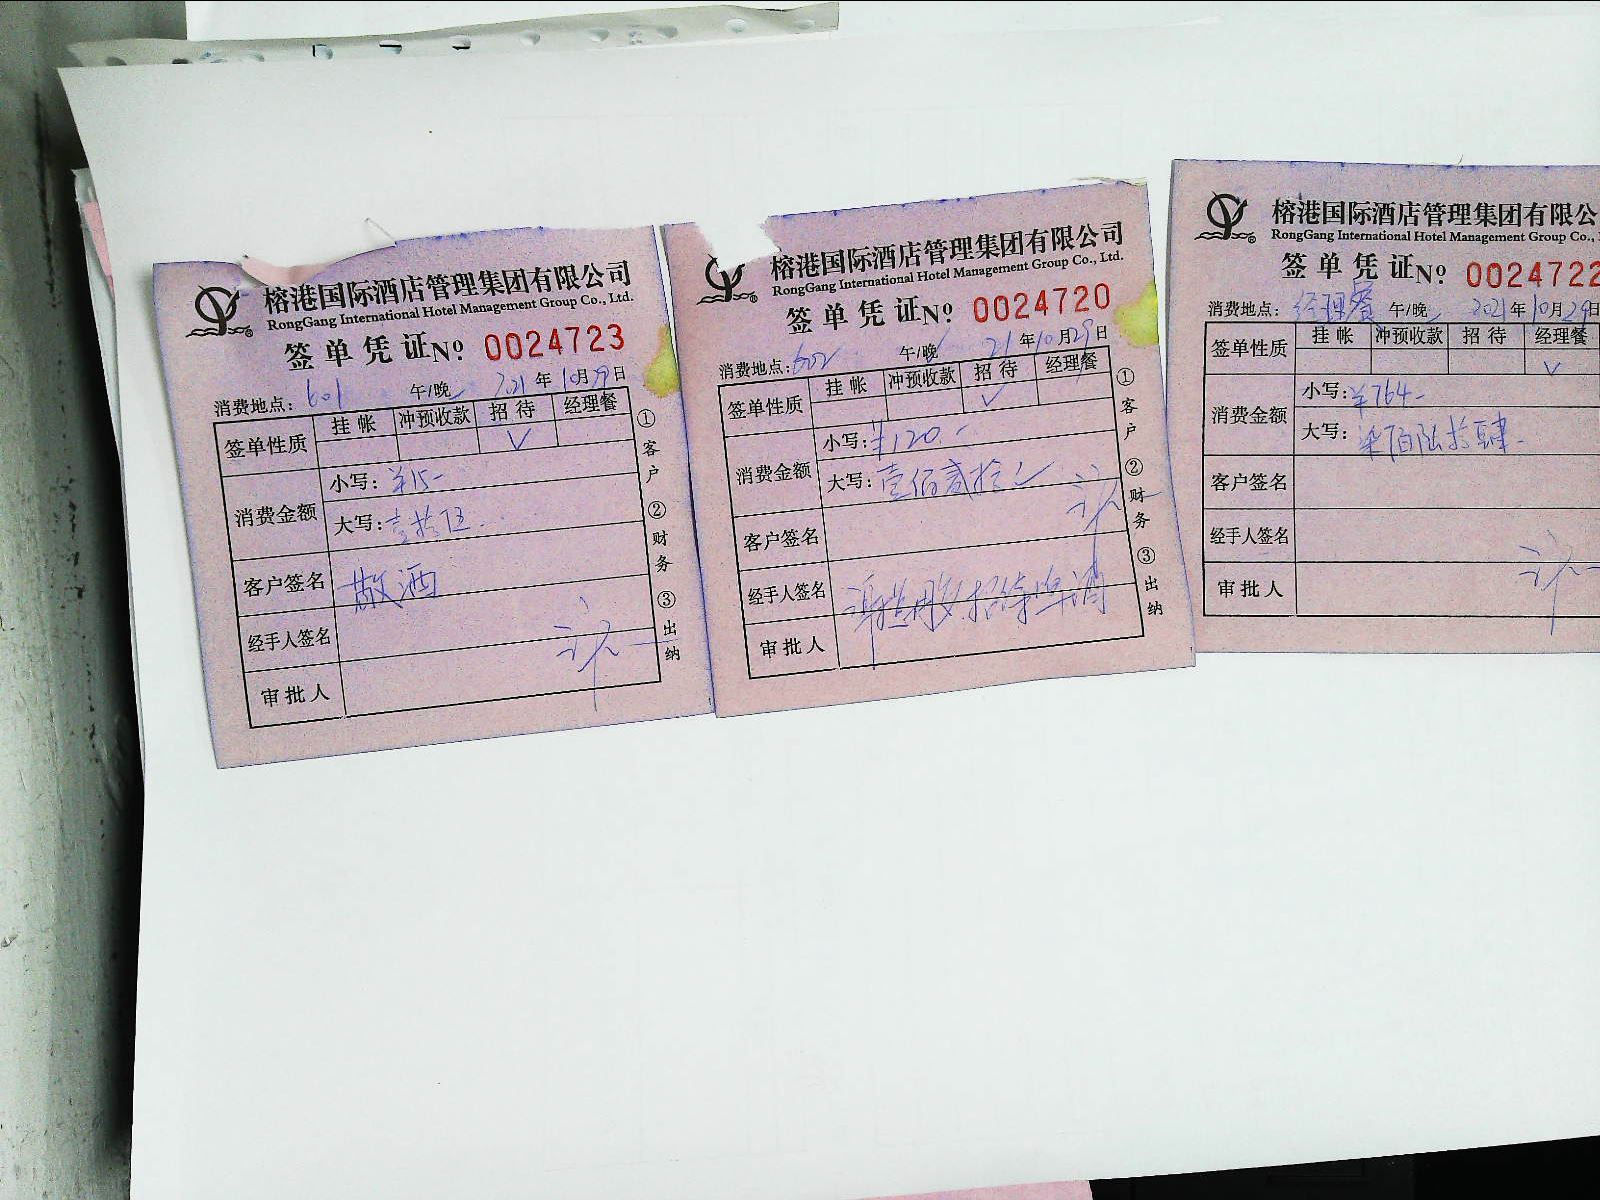 榕港国际酒店管理集团有限公司
RongGang International Hotel Management Group Co., Ltd.
签单凭证 № 0024723
消费地点: 601 午/晚 2021年10月29日
签单性质 挂帐 冲预收款 招待 经理餐
√
消费金额 小写: ¥15-
大写: 壹拾伍
客户签名 散酒
经手人签名
审批人
①客户 ②财务 ③出纳
榕港国际酒店管理集团有限公司
RongGang International Hotel Management Group Co., Ltd.
签单凭证 № 0024720
消费地点: 602 午/晚 21年10月29日
签单性质 挂帐 冲预收款 招待 经理餐
√
消费金额 小写: ¥120.-
大写: 壹佰贰拾
客户签名
经手人签名 招待啤酒
审批人
①客户 ②财务 ③出纳
榕港国际酒店管理集团有限公
RongGang International Hotel Management Group Co.,
签单凭证 № 0024722
消费地点: 经理餐 午/晚 2021年10月29日
签单性质 挂帐 冲预收款 招待 经理餐
√
消费金额 小写: ¥764-
大写: 柒佰陆拾肆
客户签名
经手人签名
审批人